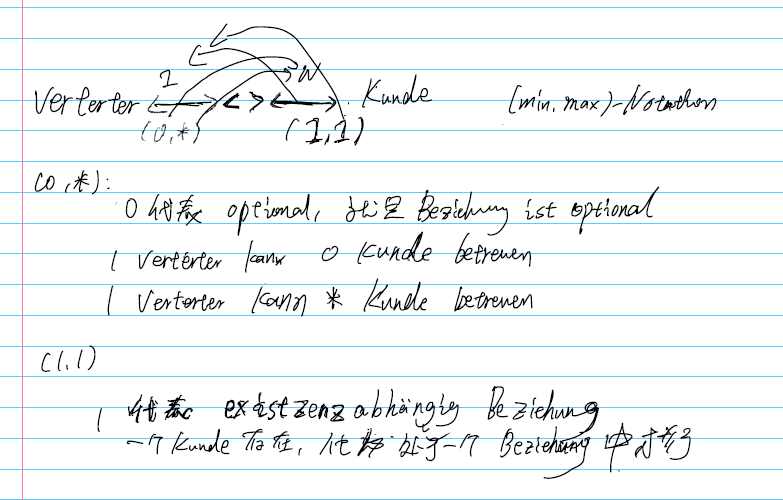 1 N
Verterter < > Kunde (min, max)-Notation
(0,*) (1,1)
(0,*):
0代表 optional, 就是 Beziehung ist optional
1 Verterter kann 0 Kunde betreuen
1 Verterter kann * Kunde betreuen
(1,1)
1 代表 existzenzabhängig Beziehung
一个Kunde存在, 他 处于一个 Beziehung 中